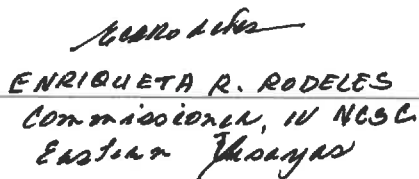 ENRIQUETA R. RODELES
Commissioner, IV NCSC
Eastern Visayas